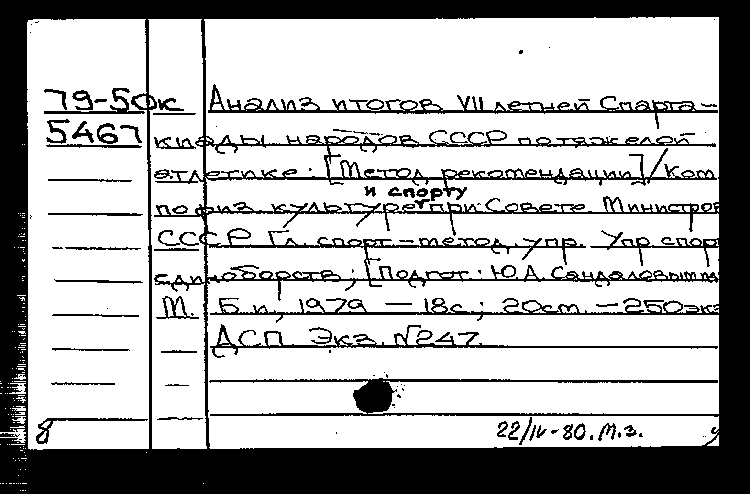 79-50к Анализ итогов VII летней Спарта-
5467 киады народов СССР по тяжелой
атлетике: [Метод. рекомендации] / Ком.
и спорту
по физ. культуре при Совете Министров
СССР Гл. спорт.-метод. упр. Упр. спорт
единоборств; [Подгот.: Ю.А. Сандаловым
М. Б.и., 1979 – 18с.; 20см. – 250экз
ДСП Экз. №247.
8 22/IV-80. М.З.